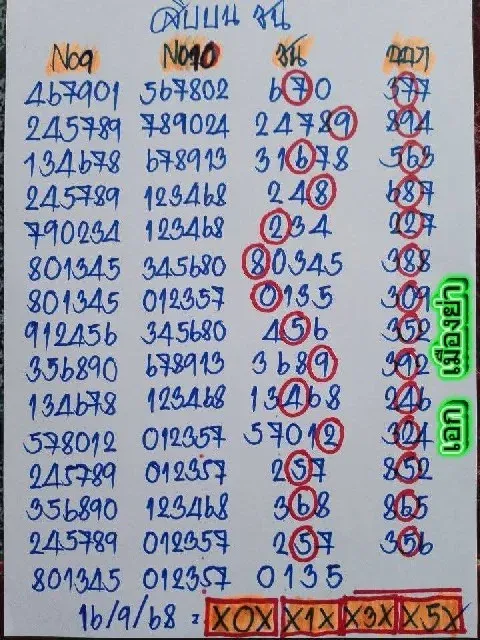 สิบบน ชน
No9 No10 ชน ออก
467901 567802 670 377
245789 789024 24789 894
134678 678913 31678 563
245789 123468 248 687
790234 123468 234 227
801345 345680 80345 388
801345 012357 0135 309
912456 345680 456 352
356890 678913 3689 392
134678 123468 13468 246
578012 012357 57012 324
245789 012357 257 852
356890 123468 368 865
245789 012357 257 356
801345 012357 0135
16/9/68 = X0X X1X X3X X5X
เอก เมืองย่า